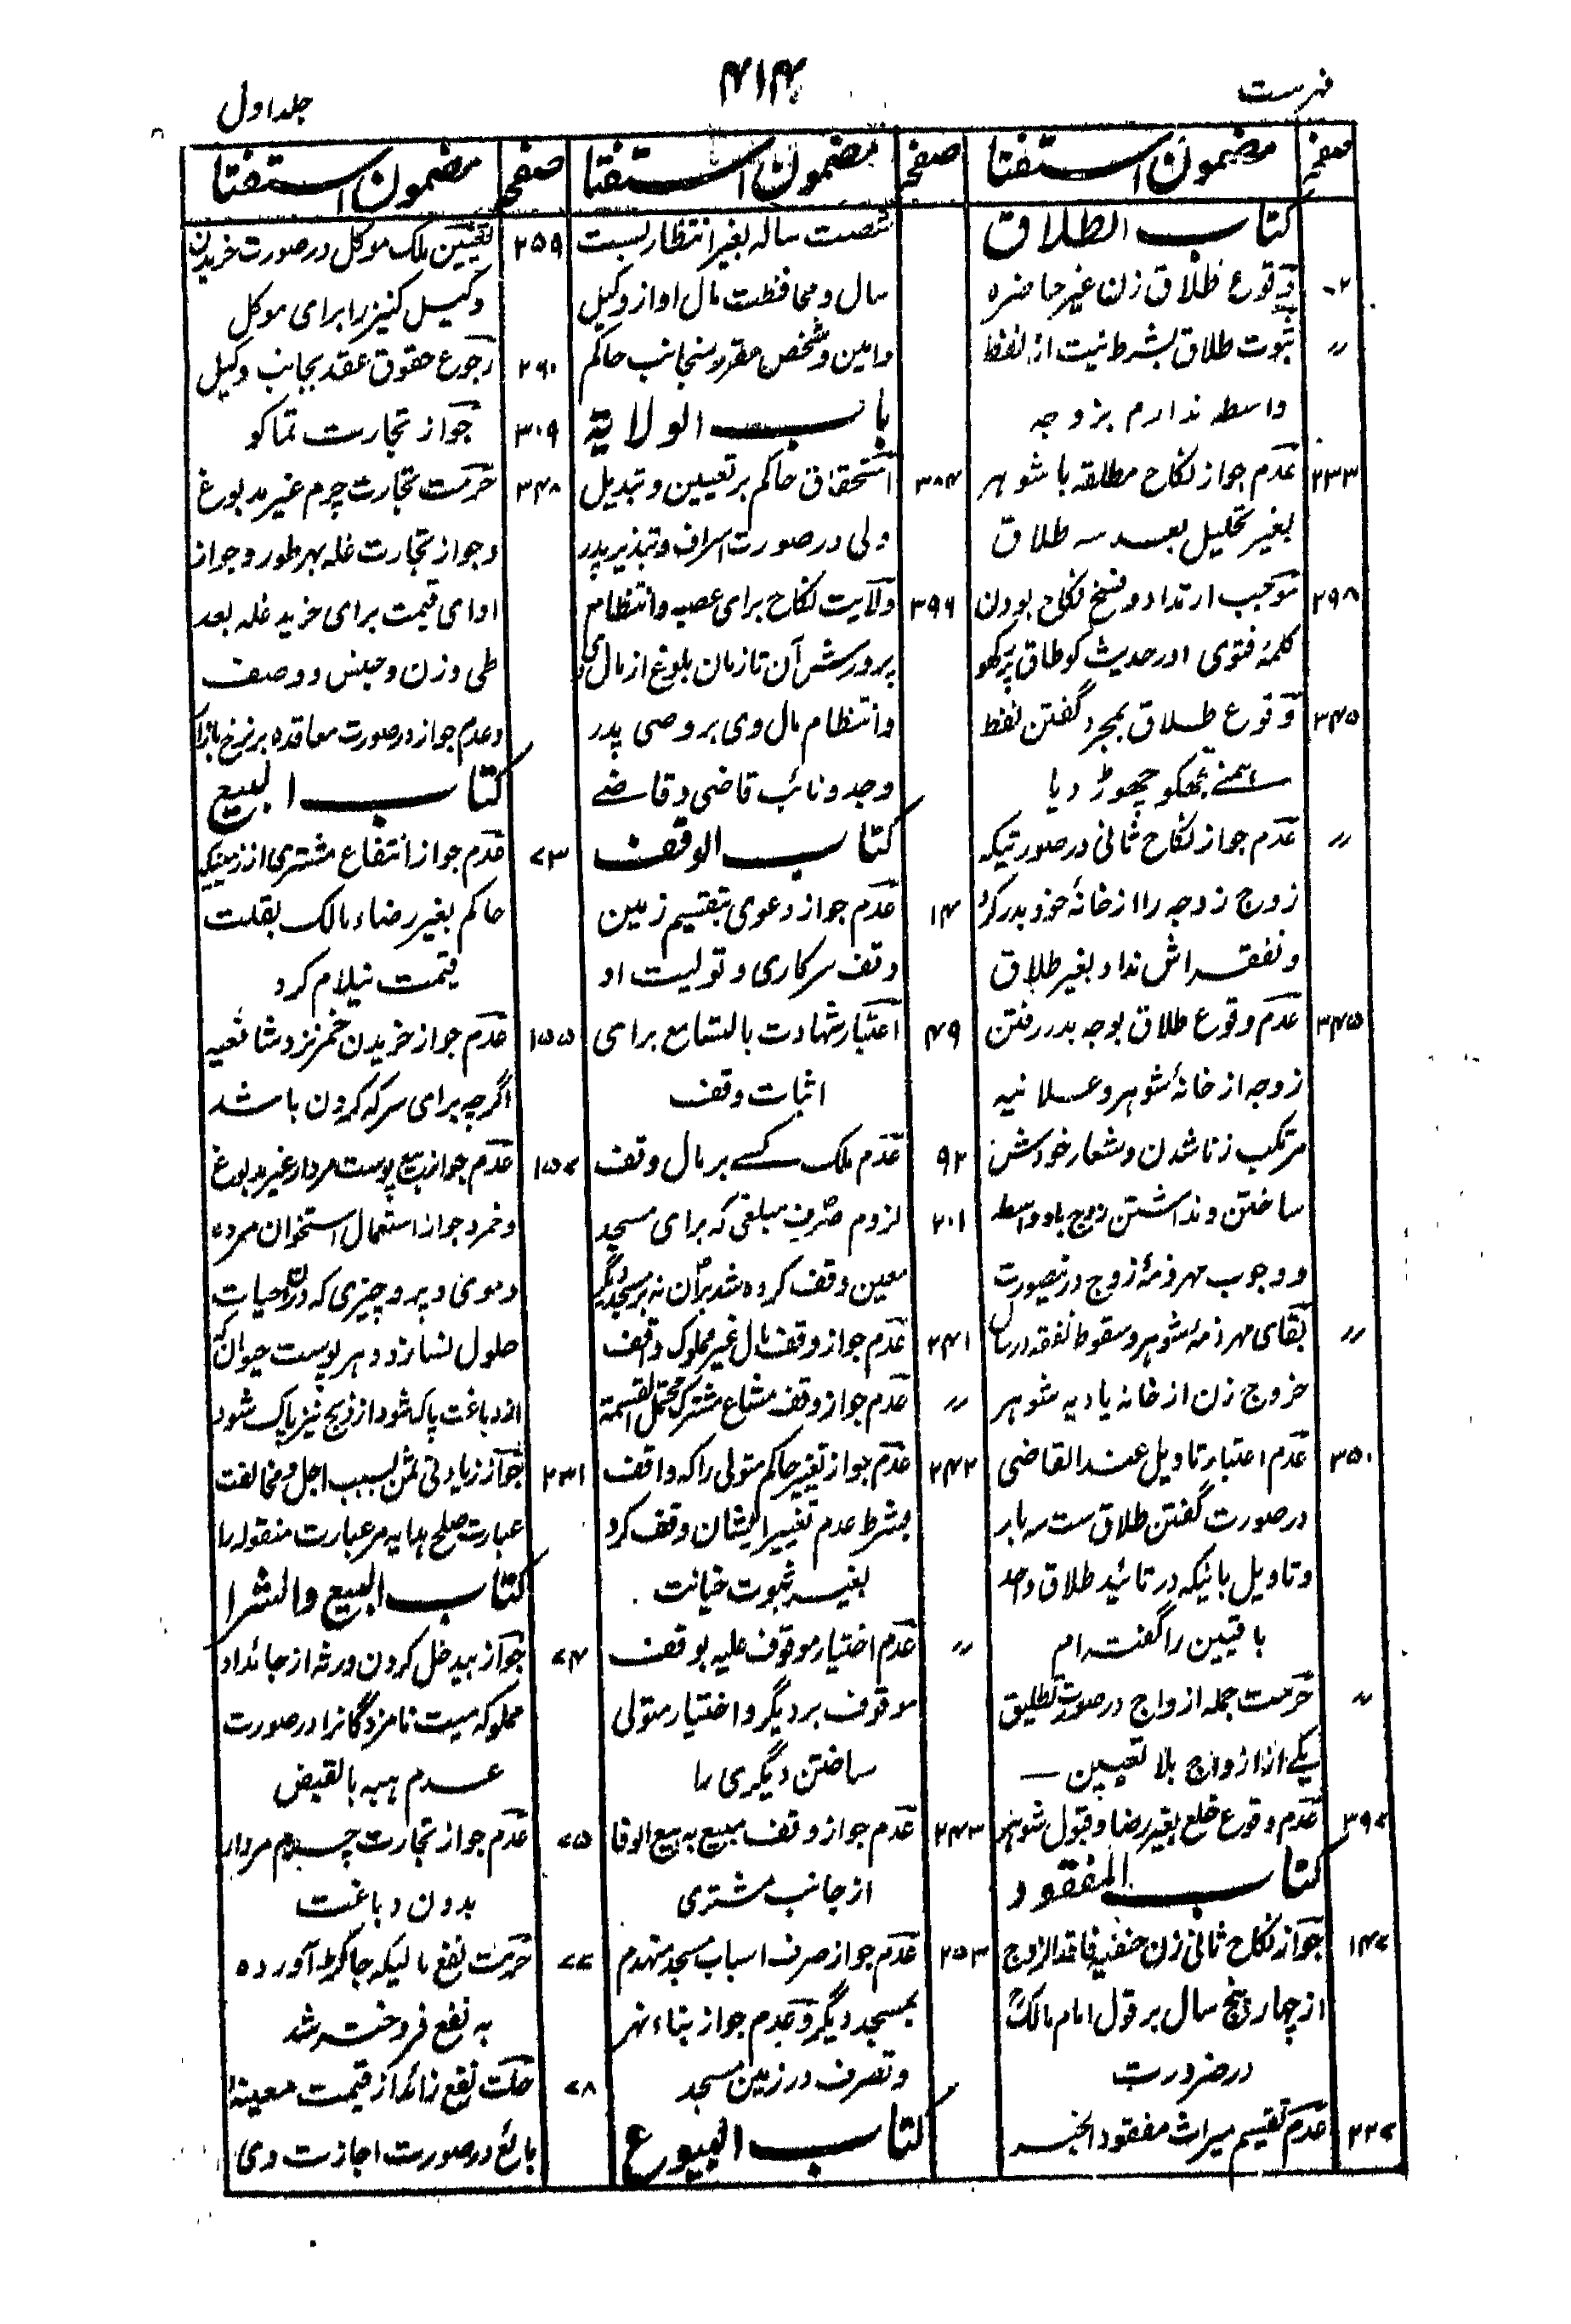 فہرست
۴۱۴
جلد اول
صفحہ
مضمون استفتا
کتاب الطلاق
۰۲ وقوع طلاق زن غیر حاضرہ
〃 ثبوت طلاق بشرط نیت از لفظ
واسطہ ندارم بزوجہ
۲۳۳ عدم جواز نکاح مطلقہ با شوہر
بغیر تحلیل بعد سہ طلاق
۲۹۸ موجب ارتداد و فسخ نکاح بودن
کلمۂ فتوی اور حدیث کو طاق پر رکھو
۳۴۵ وقوع طلاق بمجرد گفتن لفظ
ہمنے تجھکو چھوڑ دیا
〃 عدم جواز نکاح ثانی در صورتیکہ
زوج زوجہ را از خانۂ خود بدر کرد
و نفقہ اش نداد بغیر طلاق
۳۴۵ عدم وقوع طلاق بوجہ بدر رفتن
زوجہ از خانۂ شوہر و علانیہ
مرتکب زنا شدن و شعار خودش
ساختن و نداشتن زوج باو واسطہ
و وجوب مہر ذمۂ زوج درینصورت
〃 بقای مہر ذمۂ شوہر و سقوط نفقہ در سال
خروج زن از خانہ یا دیہ شوہر
۳۵۰ عدم اعتبار تاویل عند القاضی
در صورت گفتن طلاق ست سہ بار
و تاویل بانیکہ در تائید طلاق واحد
باقیین را گفتہ ام
〃 حرمت جملہ ازواج در صورت تطلیق
یکے از ازواج بلا تعیین
۳۹۷ عدم وقوع خلع بغیر رضا و قبول شوہر
کتاب المفقود
۱۴۷ جواز نکاح ثانی زن حنفیہ فاقد الزوج
از چہار پنج سال بر قول امام مالکؒ
در ضرورت
۲۲۷ عدم تقسیم میراث مفقود الخبر
صفحہ
مضمون استفتا
شصت سالہ بغیر انتظار بست
سال و محافظت مال او از وکیل
و امین و شخص مقرر منجانب حاکم
باب الولایۃ
۳۸۴ استحقاق حاکم بر تعیین و تبدیل
ولی در صورت اسراف و تبذیر پدر
۳۹۶ ولایت نکاح برای عصبہ و انتظام
پرورش آن تا زمان بلوغ از مال وی
و انتظام مال وی بر وصی پدر
و جد و نائب قاضی و قاضے
کتاب الوقف
۱۴ عدم جواز دعوی تقسیم زمین
وقف سرکاری و تولیت او
۴۹ اعتبار شہادت بالتسامع برای
اثبات وقف
۹۲ عدم ملک کسے بر مال وقف
۲۰۱ لزوم صرف مبلغی کہ برای مسجد
معین وقف کردہ شد بران نہ بر مسجد دیگر
۲۴۱ عدم جواز وقف مال غیر مملوک واقف
〃 عدم جواز وقف مشاع مشترک محتمل القسمۃ
۲۴۲ عدم جواز تغییر حاکم متولی را کہ واقف
بشرط عدم تغییر ایشان وقف کرد
بغیر ثبوت خیانت
〃 عدم اختیار موقوف علیہ بوقف
موقوف بر دیگر و اختیار متولی
ساختن دیگری را
۲۴۳ عدم جواز وقف مبیع بہ بیع الوفا
از جانب مشتری
۲۵۳ عدم جواز صرف اسباب مسجد منہدم
بمسجد دیگر و عدم جواز بناء نہر
و تصرف در زمین مسجد
کتاب البیوع
صفحہ
مضمون استفتا
۲۵۹ تعیین ملک موکل در صورت خریدن
وکیل کنیز را برای موکل
۲۶۰ رجوع حقوق عقد بجانب وکیل
۳۰۹ جواز تجارت تماکو
۳۴۸ حرمت تجارت چرم غیر مدبوغ
و جواز تجارت غلہ بہر طور و جواز
ادای قیمت برای خرید غلہ بعد
طی وزن و جنس و وصف
و عدم جواز در صورت معاقدہ بر نرخ بازار
کتاب البیع
۷۳ عدم جواز انتفاع مشتری از زمینیکہ
حاکم بغیر رضاء مالک بقلت
قیمت نیلام کرد
۱۵۵ عدم جواز خریدن خمر نزد شافعیہ
اگرچہ برای سرکہ کردن باشد
۱۵۷ عدم جواز بیع پوست مردار غیر مدبوغ
و خمر و جواز استعمال استخوان مردہ
و موی و پر و چیزی کہ دران حیات
حلول نسازد و ہر پوست حیوان کہ
از دباغت پاک شود از ذبح نیز پاک شود
۲۳۱ جواز زیادتی ثمن بسبب اجل و مخالفت
عبارت صلح ہدایہ مر عبارت منقولہ را
کتاب البیع والشرا
۷۴ جواز بیدخل کردن ورثہ از جائداد
مملوکہ میت نامزدگان را در صورت
عدم ہبہ بالقبض
۷۵ عدم جواز تجارت چرم مردار
بدون دباغت
۷۷ حرمت نفع مالیکہ جاکڑ آوردہ
بہ نفع فروختہ شد
۷۸ حلت نفع زائد از قیمت معینۂ
بائع در صورت اجازت وی